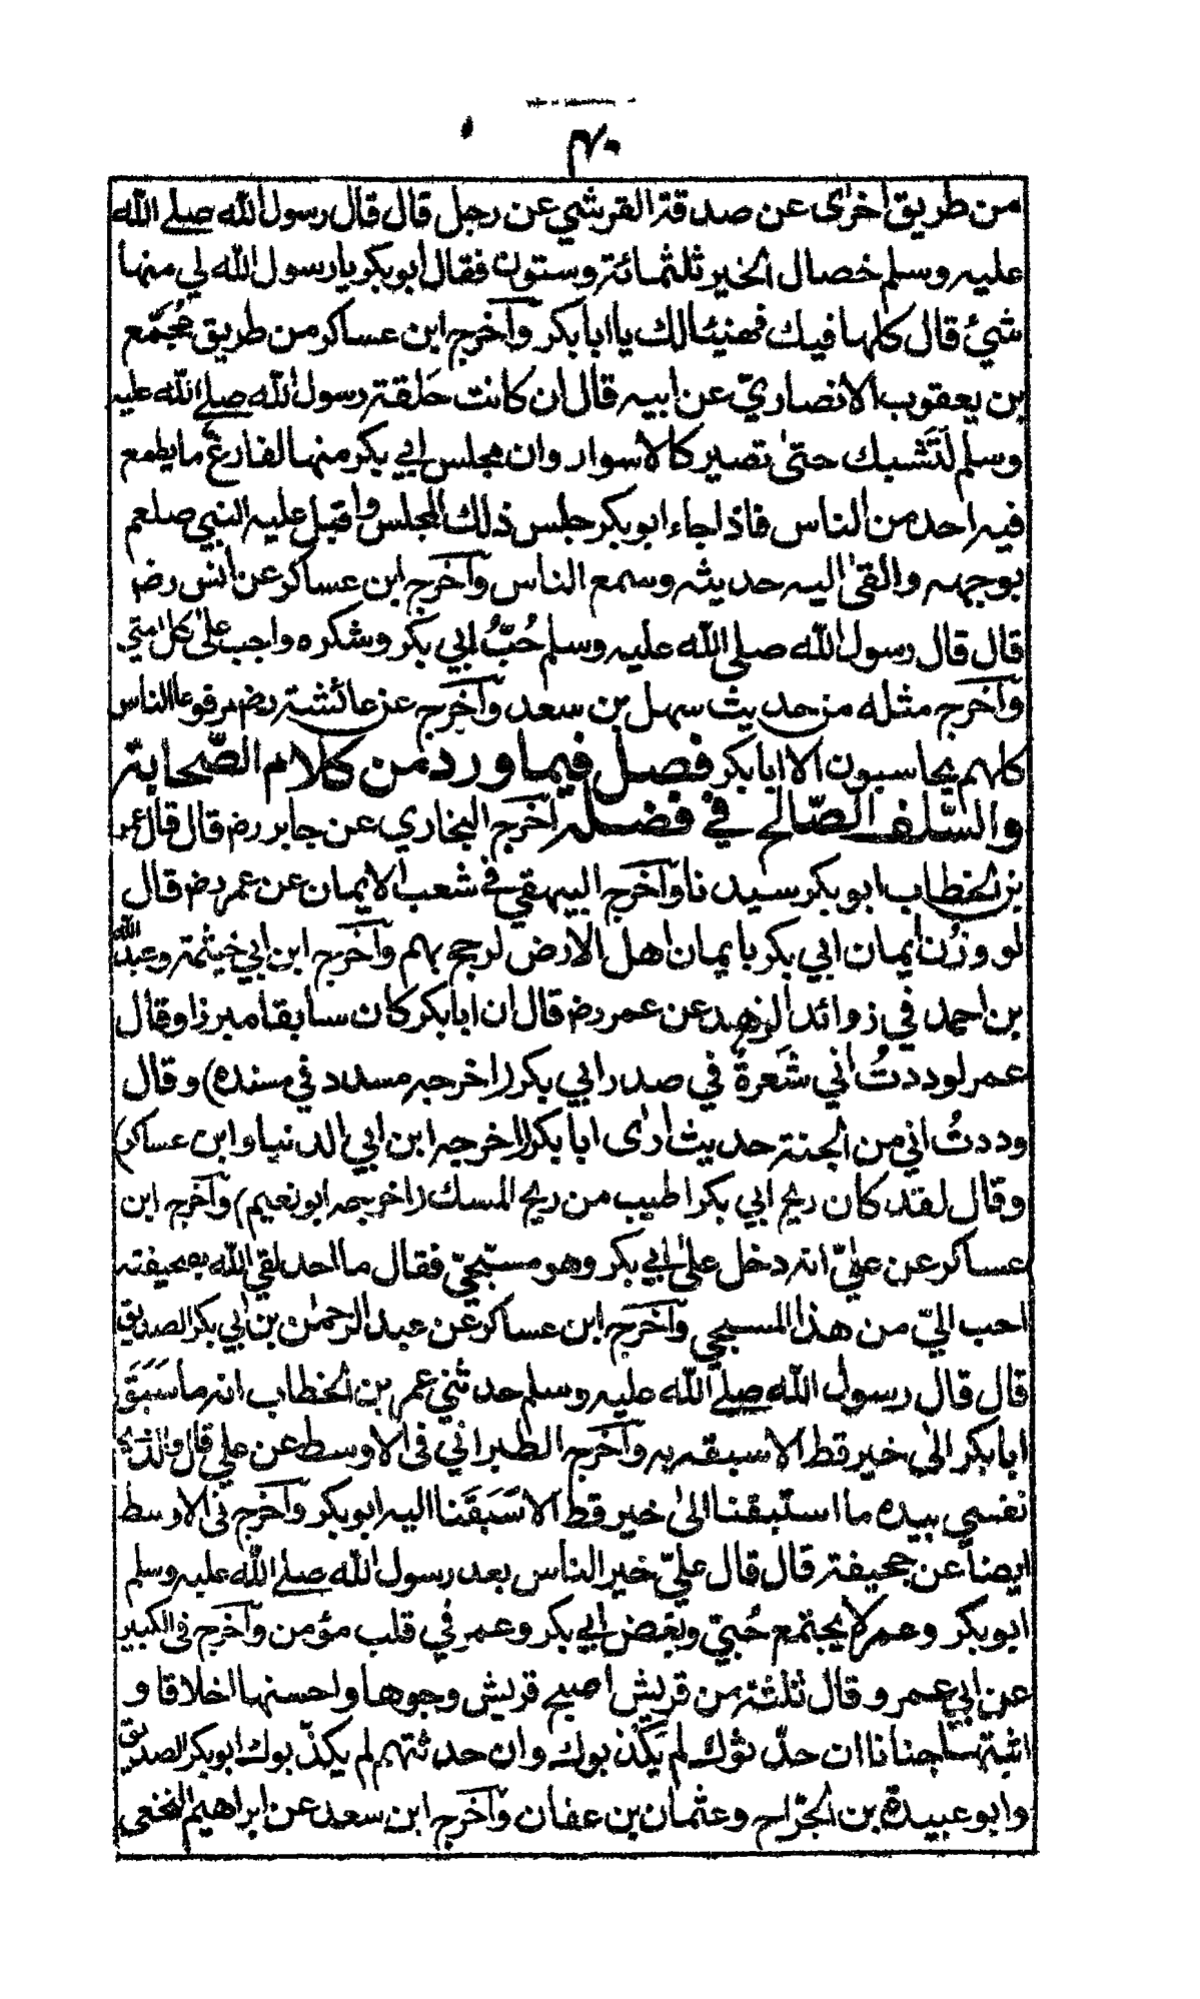 ٤٠
من طريق اخرٰى عن صدقة القرشي عن رجل قال قال رسول الله صلے الله
عليه وسلم خصال الخير ثلثمائة وستون فقال ابوبكر يا رسول الله لي منها
شيئ قال كلها فيك فهنيئا لك يا ابا بكر وآخرج ابن عساكر من طريق مُجَمّع
بن يعقوب الانصاريّ عن ابيه قال ان كانت حَلقة رسول الله صلے الله عليه
وسلم لَتَشبك حتىٰ تصير كالاسوار وان مجلس ابي بكر منها لفارغ ما يطمع
فيه احد من الناس فاذا جاء ابوبكر جلس ذلك المجلس واقبل عليه النبي صلعم
بوجهه والقىٰ اليه حديثه وسمع الناس وآخرج ابن عساكر عن انس رضـ
قال قال رسول الله صلى الله عليه وسلم حُبُّ ابي بكر وشكره واجب علىٰ كل امتي
وآخرج مثله من حديث سهل بن سعد وآخرج عن عائشة رضـ مرفوعا الناس
كلهم يحاسبون الا ابا بكر فصل فيما ورد من كلام الصّحابة
والسّلف الصّالح في فضله آخرج البخاري عن جابر رضـ قال قال عمر
بن الخطاب ابوبكر سيدنا وآخرج البيهقي في شعب الايمان عن عمر رضـ قال
لو وزُن ايمان ابي بكر بايمان اهل الارض لرجح بهم وآخرج ابن ابي خيثمة وعبد الله
بن احمد في زوائد الزهد عن عمر رضـ قال ان ابا بكر كان سابقا مبرزا وقال
عمر لوددتُ اني شَعرةٌ في صدر ابي بكر (اخرجه مسدد في مسنده) وقال
وددتُ اني من الجنة حديث ارٰى ابا بكر (اخرجه ابن ابي الدنيا وابن عساكر)
وقال لقد كان ريح ابي بكر اطيب من ريح المسك (اخرجه ابو نعيم) وآخرج ابن
عساكر عن عليّ انه دخل علىٰ ابي بكر وهو مسبّحيّ فقال ما احد لقي الله بصحيفته
احب اليّ من هذا المسبحي وآخرج ابن عساكر عن عبد الرحمٰن بن ابي بكر الصديق
قال قال رسول الله صلے الله عليه وسلم حدثني عمر بن الخطاب انه ما سَبَقَ
ابا بكر الىٰ خير قط الا سبقه به وآخرج الطبراني فى الاوسط عن علي قال والذي
نفسي بيده ما استبقنا الىٰ خير قط الا سَبَقَنا اليه ابوبكر وآخرج فى الاوسط
ايضاً عن جحيفة قال قال عليّ خير الناس بعد رسول الله صلے الله عليه وسلم
ابوبكر وعمر لا يجتمع حُبيّ وبغض ابي بكر وعمر في قلب مؤمن وآخرج فى الكبير
عن ابي عمر و قال ثلثة من قريش اصبح قريش وجوها واحسنها اخلاقا و
اثبتها جنانا ان حدّثوك لم يَكذبوك وان حدثتهم لم يكذّبوك ابوبكر الصديق
وابوعبيدة بن الجرّاح وعثمان بن عفان وآخرج ابن سعد عن ابراهيم النخعى